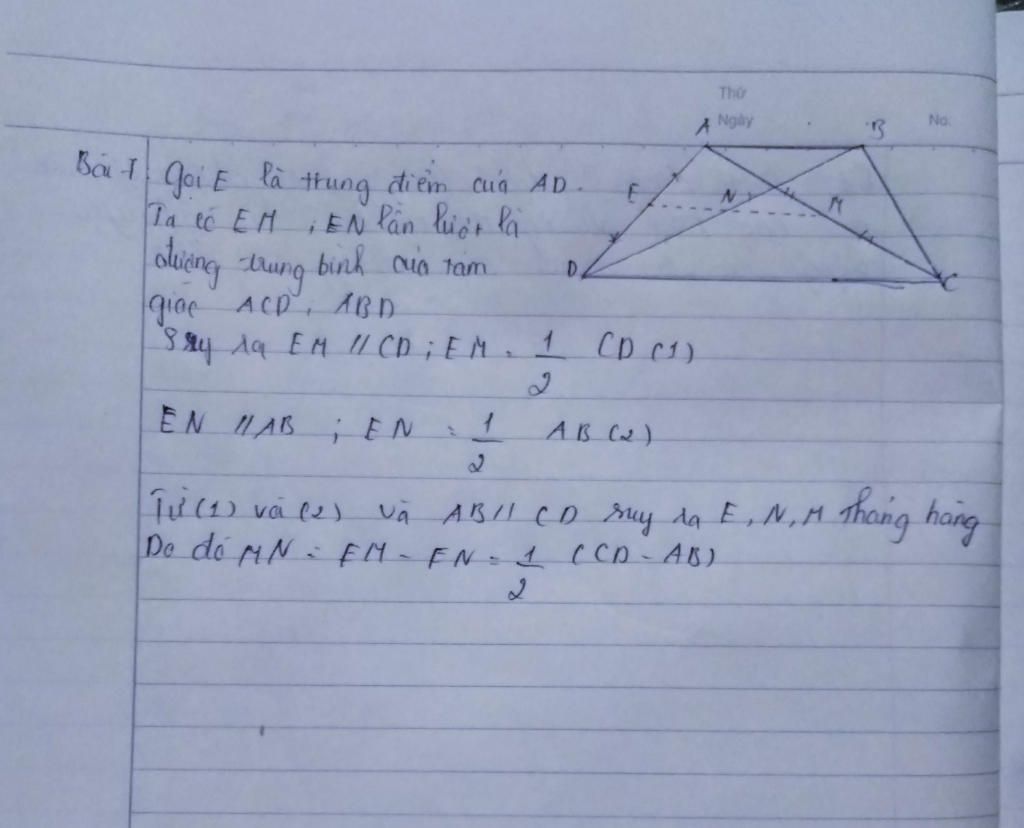 Thứ
Ngày
No.
A B
E N M
D C
Bài 1 Gọi E là trung điểm của AD.
Ta có EM ; EN lần lượt là
đường trung bình của tam
giác ACD, ABD
Suy ra EM // CD ; EM = 1/2 CD (1)
EN // AB ; EN = 1/2 AB (2)
Từ (1) và (2) và AB // CD suy ra E, N, M thẳng hàng
Do đó MN = EM - EN = 1/2 (CD - AB)